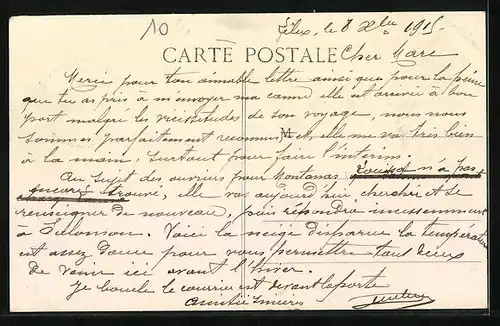 10
le 8 Xbre 1915
CARTE POSTALE
Cher Marc
Merci pour ton aimable lettre ainsi que pour la peine
que tu as pris à m'envoyer ma canne elle est arrivée à bon
port malgré les vicissitudes de son voyage, nous nous
sommes parfaitement reconnus et elle me va très bien
M
à la main, surtout pour faire l'intérim.
Au sujet des ouvriers pour n'a pas
encore trouvé, elle va aujourd'hui chercher et se
renseigner de nouveau, puis répondra incessamment
à Voici la neige disparue la température
est assez douce pour vous permettre tous deux
de venir ici avant l'hiver.
Je boucle le courrier est devant la porte
Amitiés sincères